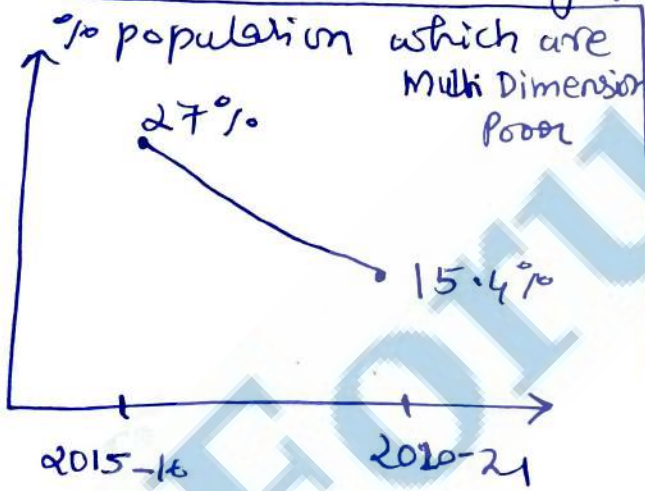 % population which are
Multi Dimension
Pooor
27%
15.4%
2015-16
2020-21
Foru